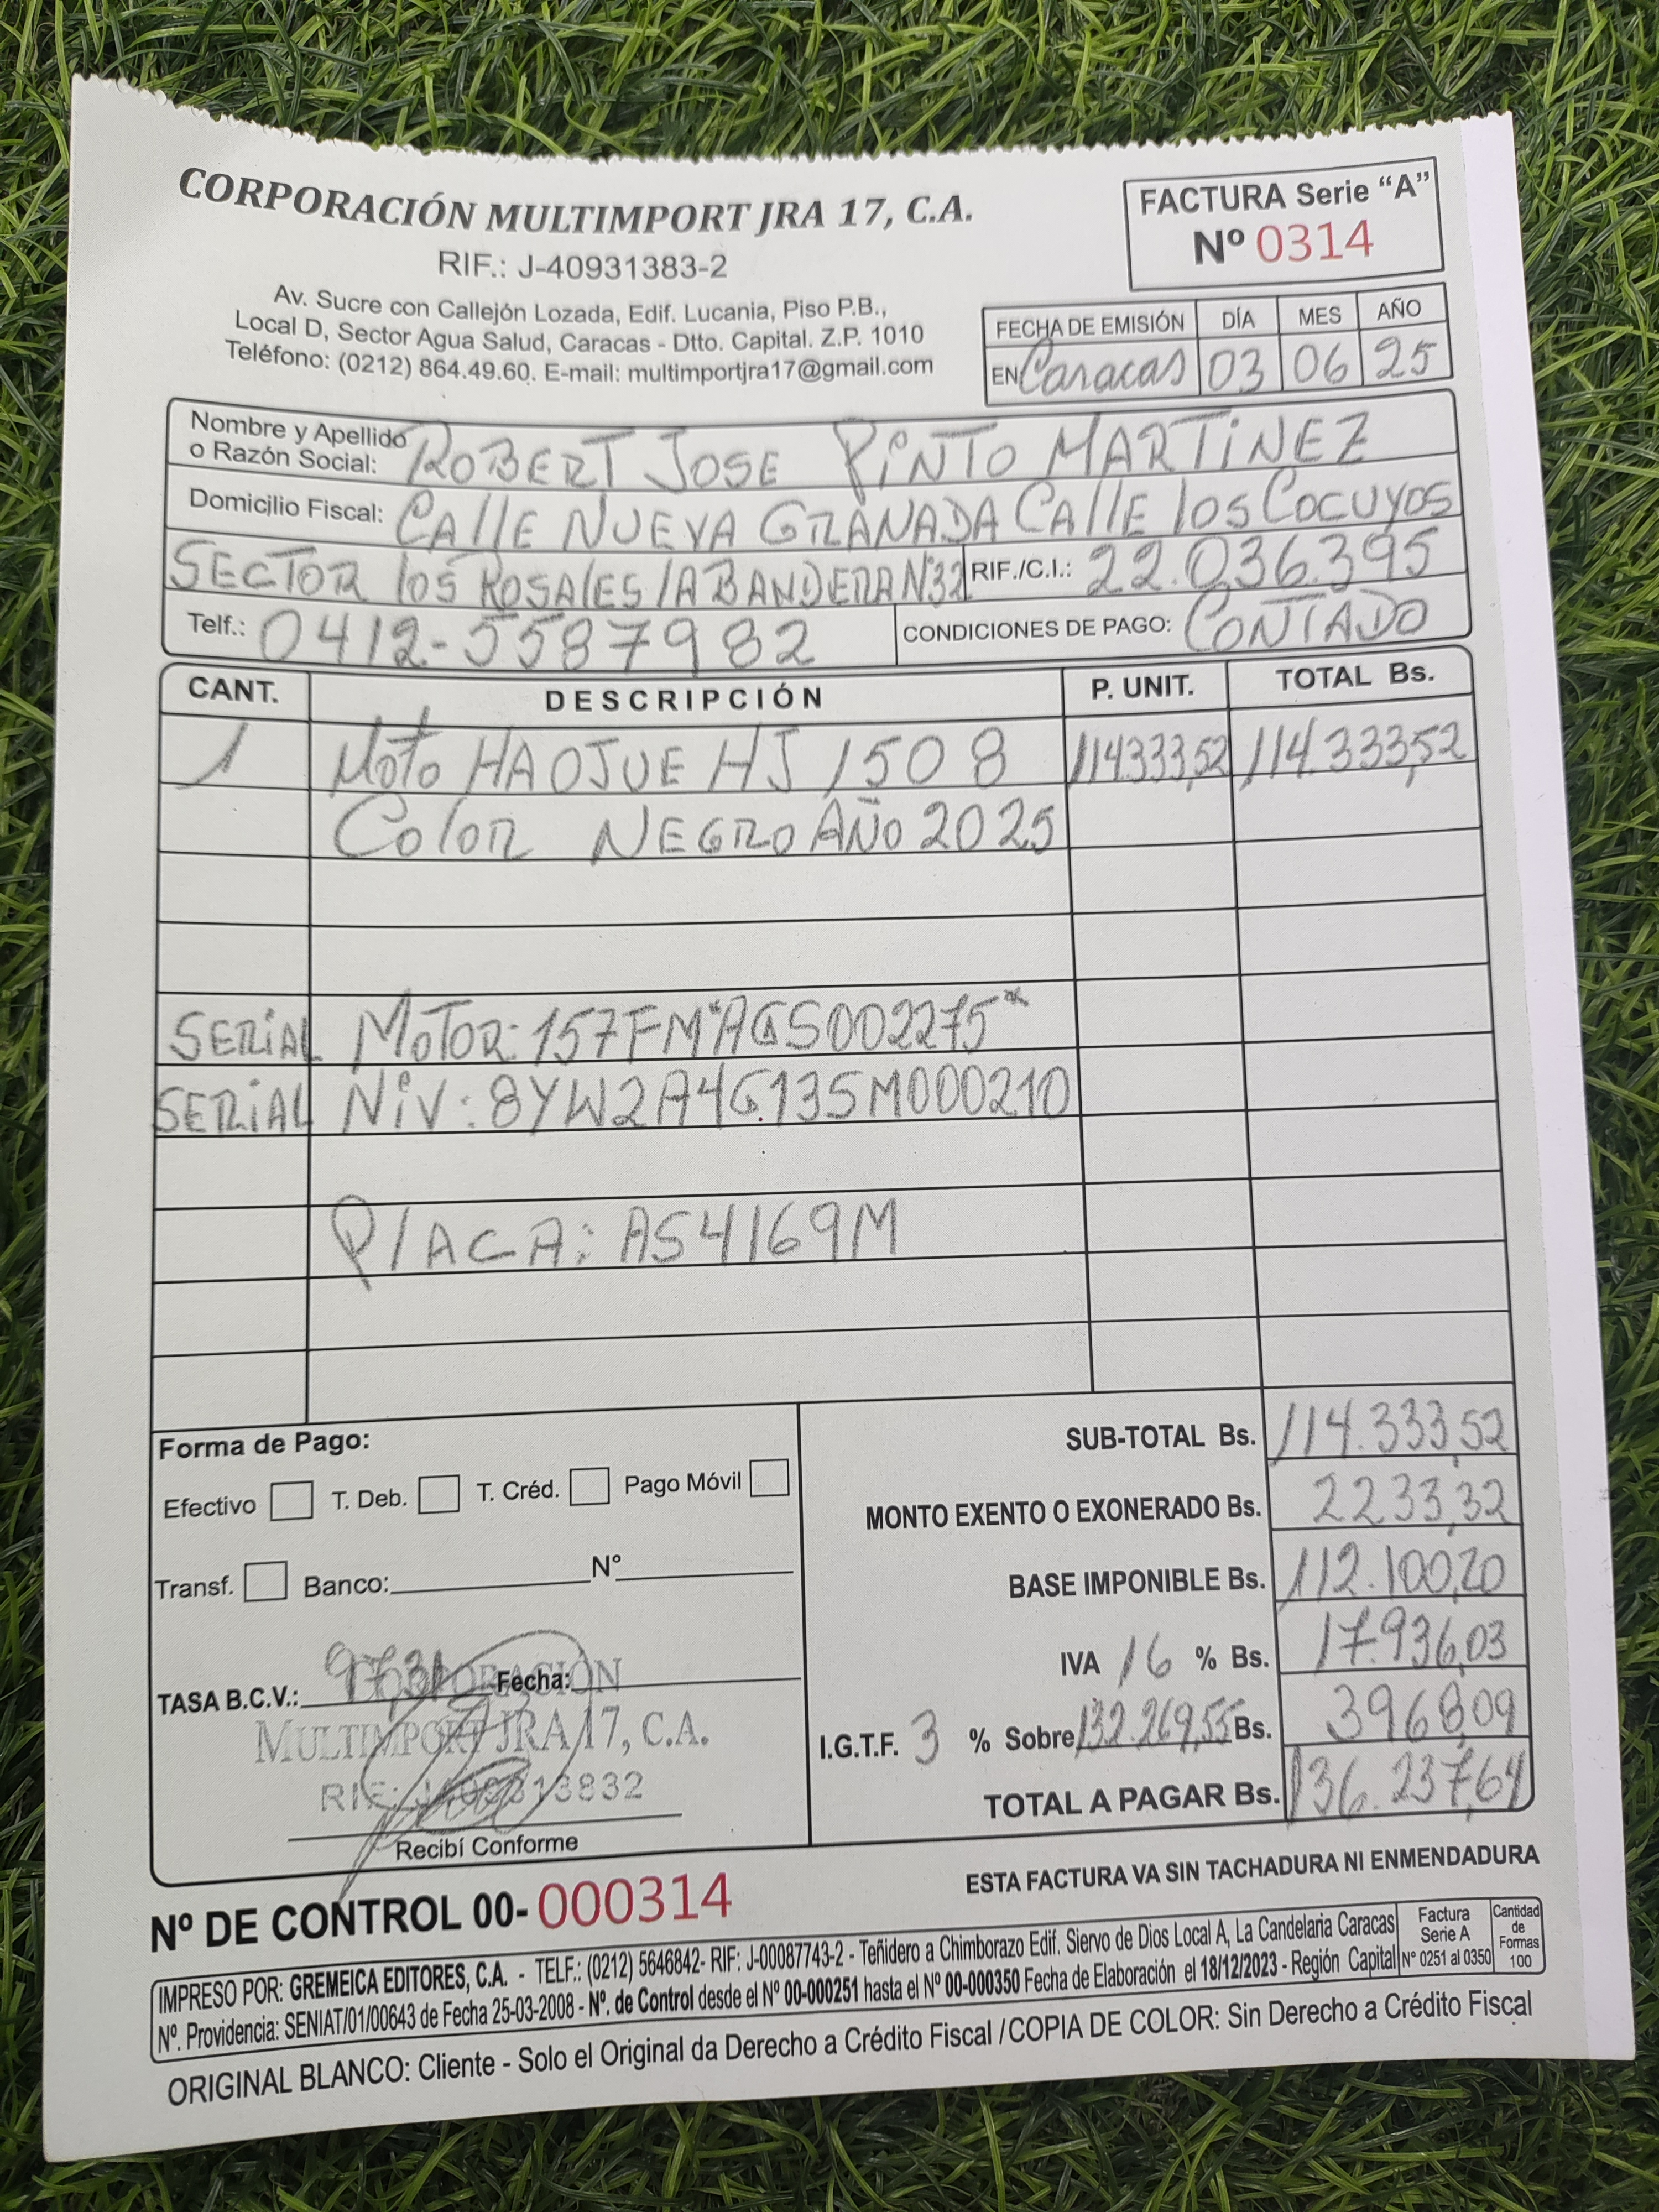 CORPORACIÓN MULTIMPORT JRA 17, C.A.
RIF.: J-40931383-2
Av. Sucre con Callejón Lozada, Edif. Lucania, Piso P.B.,
Local D, Sector Agua Salud, Caracas - Dtto. Capital. Z.P. 1010
Teléfono: (0212) 864.49.60. E-mail: multimportjra17@gmail.com
FACTURA Serie "A"
Nº 0314
FECHA DE EMISIÓN DÍA MES AÑO
EN Caracas 03 06 25
Nombre y Apellido
o Razón Social: ROBERT JOSE PiNTO MARTiNEZ
Domicilio Fiscal: CAllE NUEVA GRANADA CAllE los COCUYOS
SECTOR los ROSAlES lA BANDERA N32 RIF./C.I.: 22.036.395
Telf.: 0412-5587982 CONDICIONES DE PAGO: CONTADO
CANT. DESCRIPCIÓN P. UNIT. TOTAL Bs.
1 Moto HAOJUE HJ 150 8 114333,52 114.333,52
Color NEGRO AÑO 2025
SERiAL MOTOR: 157FM*AGS002275*
SERiAL NiV: 8YW2A4G13SM000210
PlACA: AS4169M
Forma de Pago:
Efectivo T. Deb. T. Créd. Pago Móvil
Transf. Banco: N°
TASA B.C.V.: 97,31 Fecha:
CORPORACIÓN
MULTIMPORT JRA 17, C.A.
RIF: J409313832
Recibí Conforme
SUB-TOTAL Bs. 114.333,52
MONTO EXENTO O EXONERADO Bs. 2233,32
BASE IMPONIBLE Bs. 112.100,20
IVA 16 % Bs. 17.936,03
I.G.T.F. 3 % Sobre 132.269,55 Bs. 3968,09
TOTAL A PAGAR Bs. 136.237,64
Nº DE CONTROL 00- 000314
ESTA FACTURA VA SIN TACHADURA NI ENMENDADURA
IMPRESO POR: GREMEICA EDITORES, C.A. - TELF.: (0212) 5646842- RIF: J-00087743-2 - Teñidero a Chimborazo Edif. Siervo de Dios Local A, La Candelaria Caracas
Nº. Providencia: SENIAT/01/00643 de Fecha 25-03-2008 - Nº. de Control desde el Nº 00-000251 hasta el Nº 00-000350 Fecha de Elaboración el 18/12/2023 - Región Capital
Factura
Serie A
N° 0251 al 0350
Cantidad
de
Formas
100
ORIGINAL BLANCO: Cliente - Solo el Original da Derecho a Crédito Fiscal / COPIA DE COLOR: Sin Derecho a Crédito Fiscal